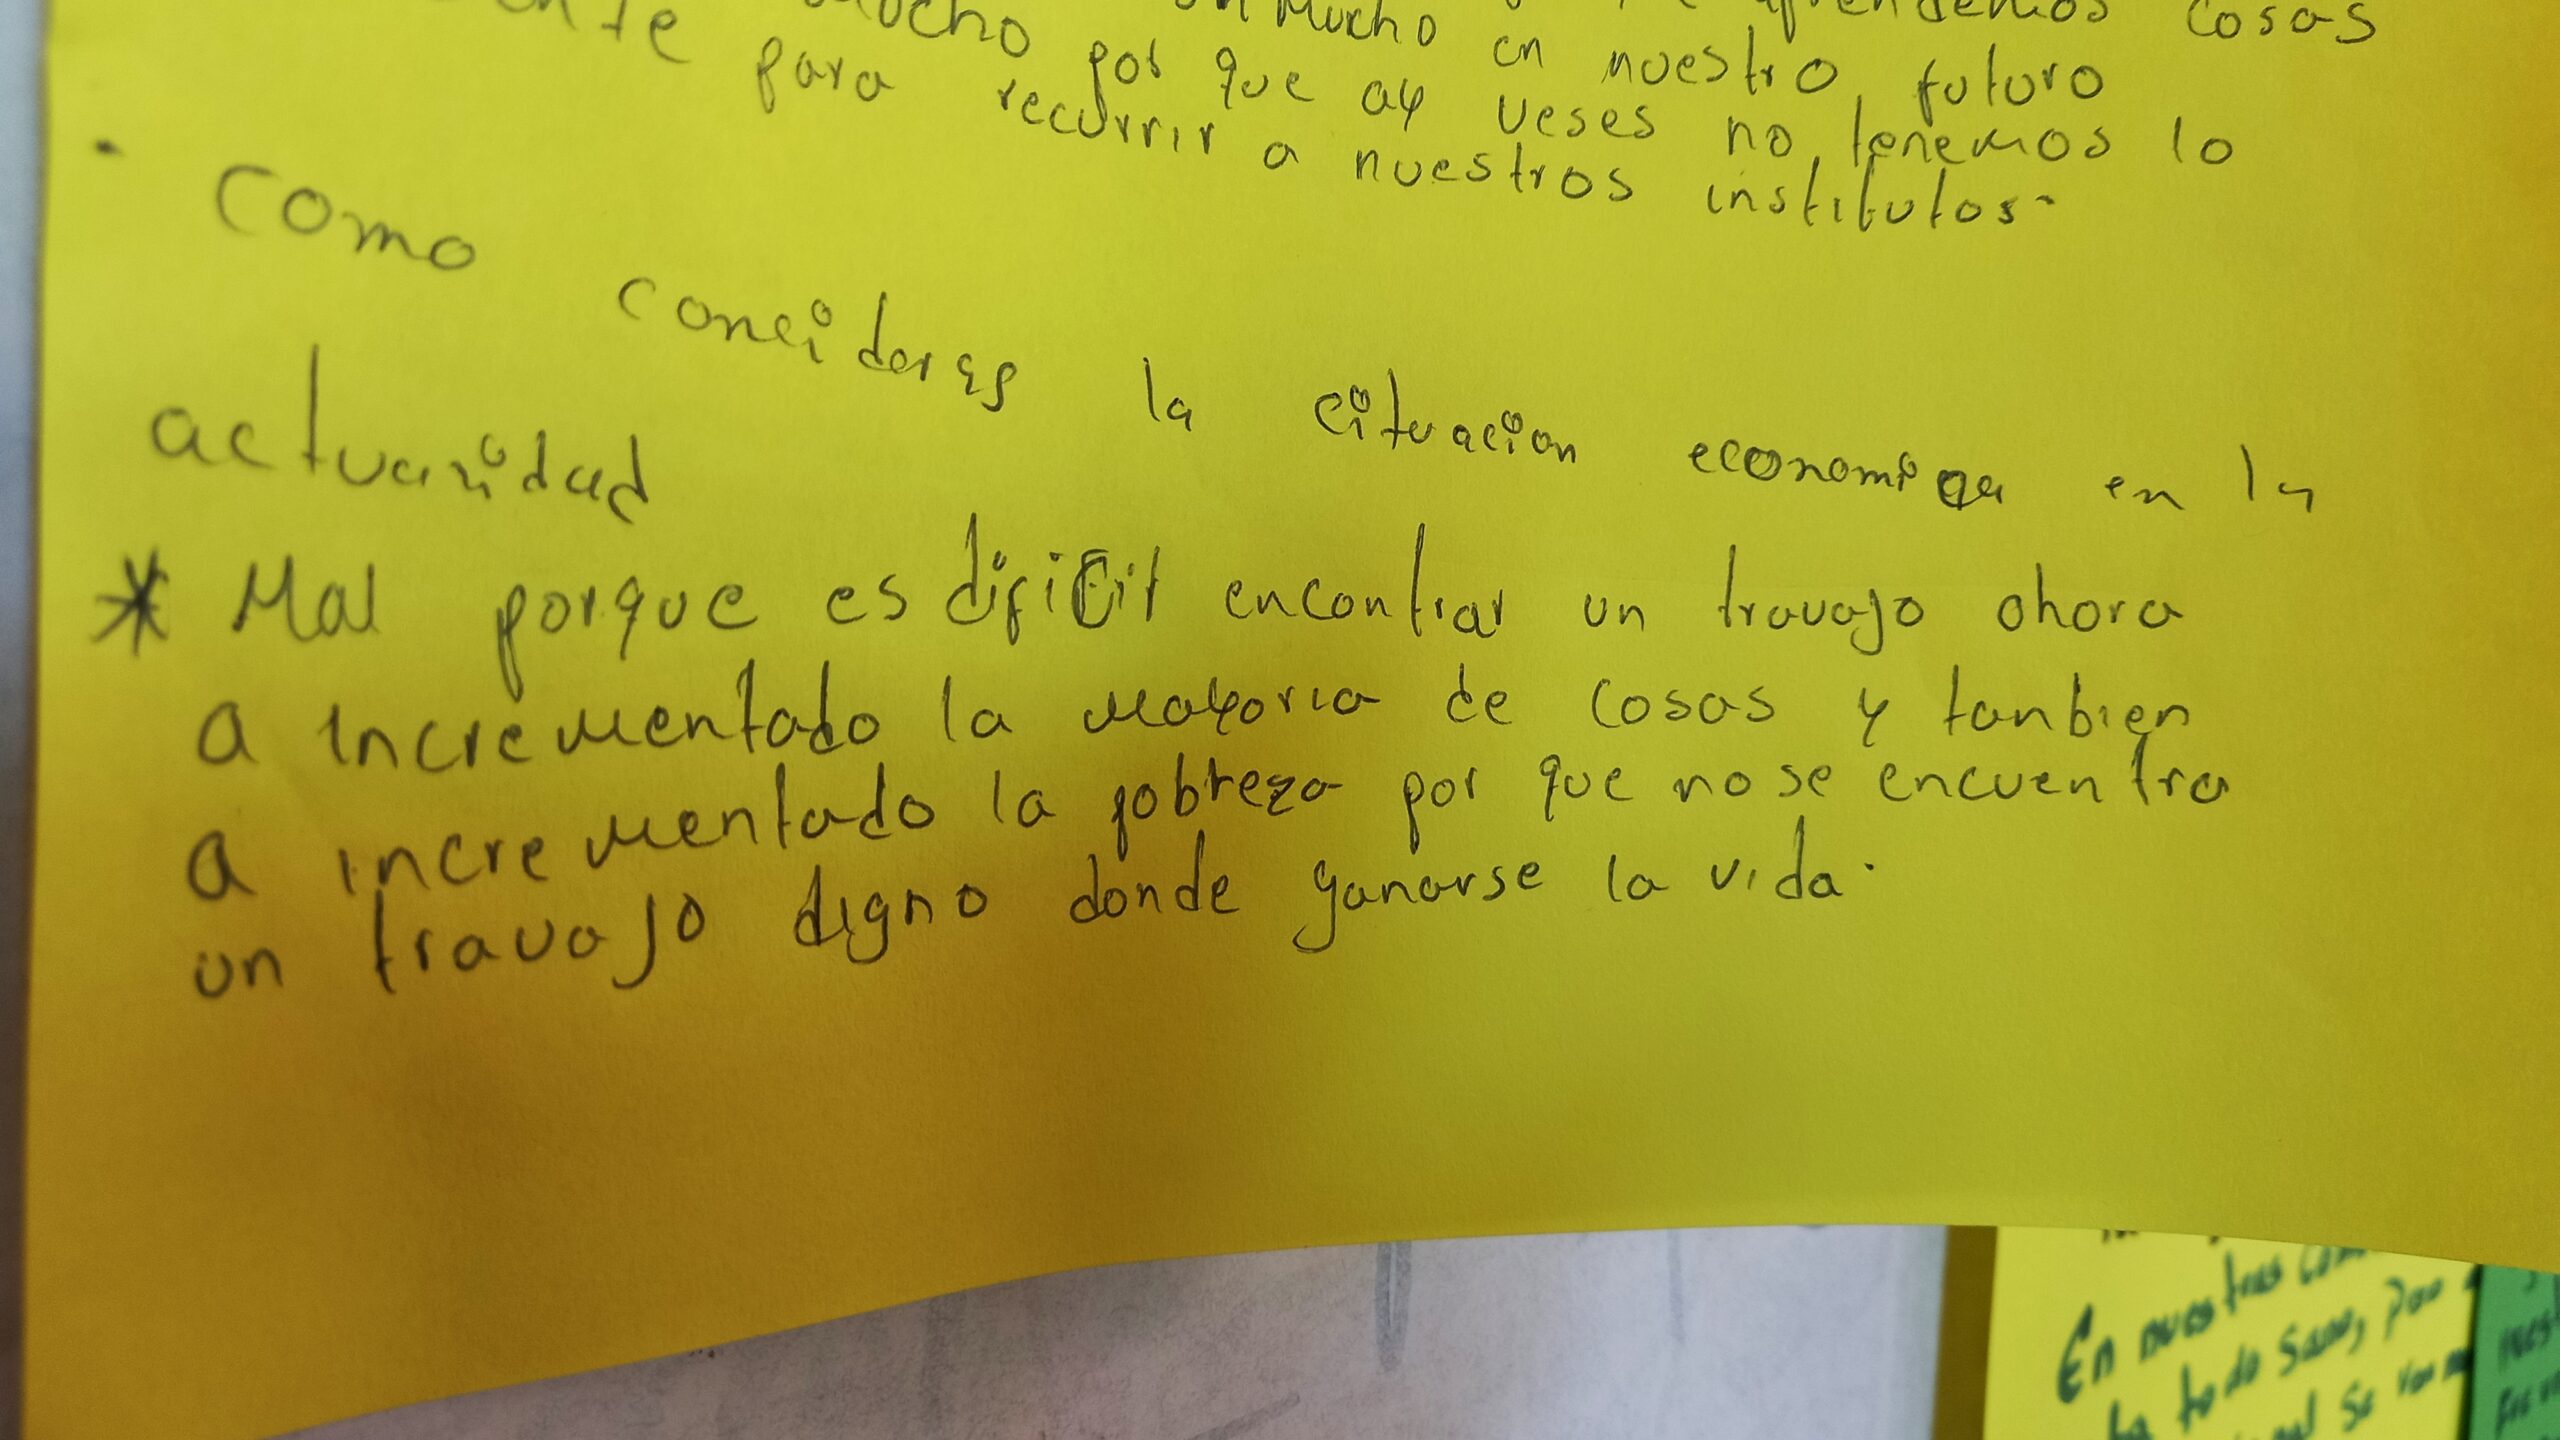 mucho en aprendemos cosas
mucho por que en nuestro futuro
para recurrir ay veses no tenemos lo
a nuestros institutos.
. Como concideres la cituacion economica en la
actuaridad
* Mal porque es dificil encontrar un travajo ahora
a incrementado la mayoria de cosas y tanbien
a incrementado la pobreza por que no se encuentra
un travajo digno donde ganarse la vida.
En nuestras
todo sano, por
se